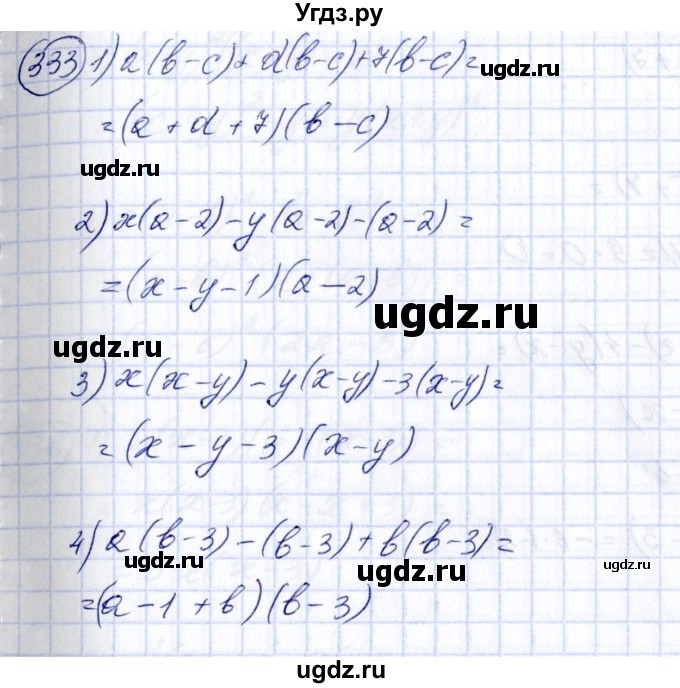 Угдз.ру
333 1) a(b-c)+d(b-c)+7(b-c)=
ugdz.ru
=(a+d+7)(b-c)
ugdz.ru
ugdz.ru
2) x(a-2)-y(a-2)-(a-2)=
=(x-y-1)(a-2)
ugdz.ru
ugdz.ru
3) x(x-y)-y(x-y)-3(x-y)=
=(x-y-3)(x-y)
ugdz.ru
4) a(b-3)-(b-3)+b(b-3)=
ugdz.ru
ugdz.ru
ugdz.ru
=(a-1+b)(b-3)
ugdz.ru
ugdz.ru